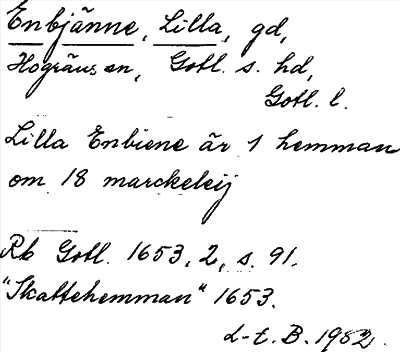 Enbjänne, Lilla, gd,
Hogräns sn, Gotl. s. hd,
Gotl. l.
Lilla Enbiene är 1 hemman
om 18 marckeleij
Rb Gotl. 1653, 2, s. 91.
"Skattehemman" 1653.
L-t. B. 1952.